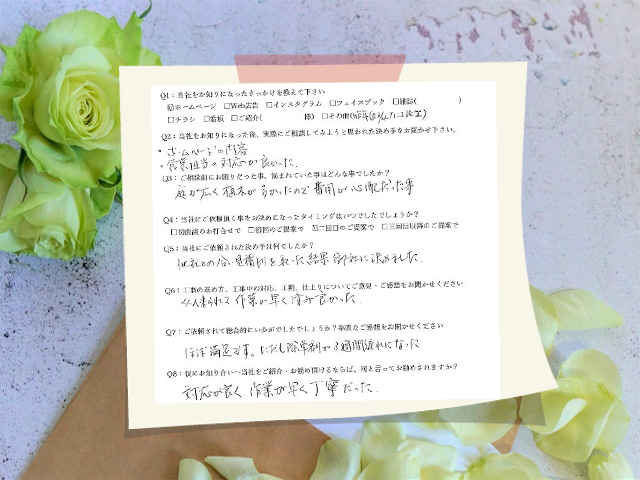 Q1：当社をお知りになったきっかけを教えて下さい
☑ホームページ　□Web広告　□インスタグラム　□フェイスブック　□雑誌(　　　　)
□チラシ　□看板　□ご紹介(　　　　様)　□その他(
Q2：当社をお知りになった後、実際にご相談してみようと思われた決め手をお聞かせ下さい。
・ホームページの内容
・営業担当の対応が良かった。
Q3：ご相談前にお困りだった事、悩まれていた事はどんな事でしたか？
庭が広く植木が多かったので費用が心配だった事
Q4：当社にご依頼頂く事をお決めになったタイミングはいつでしたでしょうか？
□初回談のお打合せで　□初回のご提案で　☑二回目のご提案で　□三回目以降のご提案で
Q5：当社にご依頼された決め手は何でしたか？
他社との合い見積りを取った結果御社に決めました。
Q6：工事の進め方、工事中の対応、工期、仕上りについてご意見・ご感想をお聞かせください
作業が早く 良かった。
Q7：ご依頼されて総合的にいかがでしたでしょうか？率直なご感想をお聞かせください
ほぼ満足です。ただし除草剤が 週間遅れになった
Q8：仮にお知り合いへ当社をご紹介・お勧め頂けるならば、何と言ってお勧めされますか？
対応が良く 作業が早く丁寧だった。